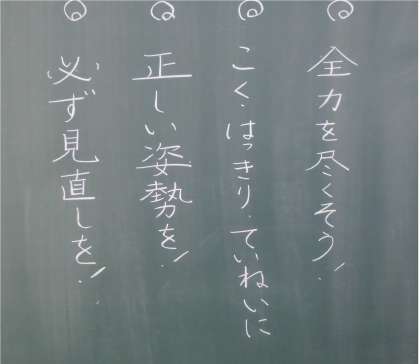 ◎全力を尽くそう!
◎こく・はっきり・ていねいに
◎正しい姿勢を!
◎必ず見直しを!